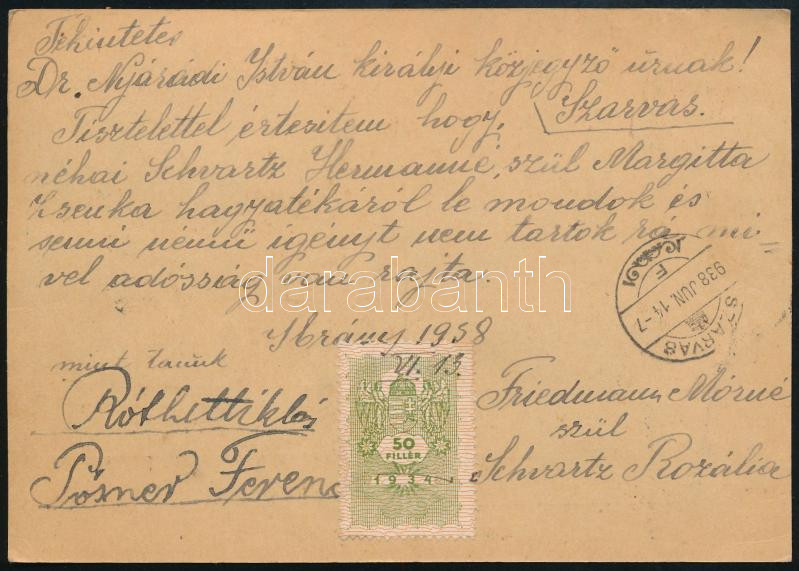 Tekintetes
Dr. Nyárádi István királyi közjegyző úrnak!
Szarvas.
Tisztelettel értesitem hogy,
néhai Schvartz Hermanné, szül Margitta
Zsenka hagyatékáról le mondok és
semmi némű igényt nem tartok rá mi=
vel adósság van rajta.
Ibrány 1938
VI. 13.
mint tanuk
Róth
Pósner Ferenc
Friedmann Mórné
szül
Schvartz Rozália
50
FILLÉR
1934
SZARVAS
938 JUN. 14-7
F
darabanth